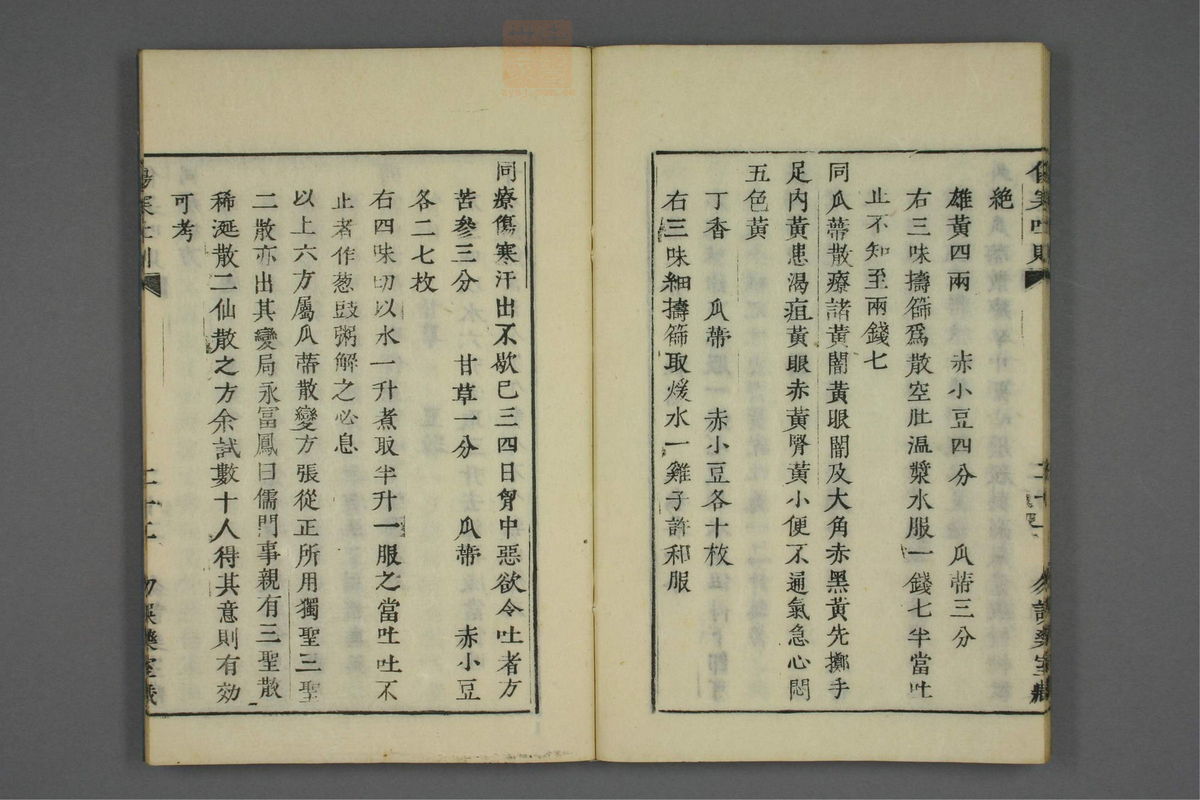 絶
雄黃四兩 赤小豆四分 瓜蔕三分
右三味擣篩爲散空肚温漿水服一錢七半當吐
止不知至兩錢七
同瓜蔕散療諸黃闇黃眼闇及大角赤黑黃先擲手
足內黃患渴疽黃眼赤黃腎黃小便不通氣急心悶
五色黃
丁香 瓜蔕 赤小豆各十枚
右三味細擣篩取煖水一雞子許和服
同療傷寒汗出不歇已三四日胷中惡欲令吐者方
苦參三分 甘草一分 瓜蔕 赤小豆
各二七枚
右四味切以水一升煮取半升一服之當吐吐不
止者作葱豉粥解之必息
以上六方屬瓜蔕散變方張從正所用獨聖三聖
二散亦出其變局永冨鳳曰儒門事親有三聖散
稀涎散二仙散之方余試數十人得其意則有効
可考
二十二